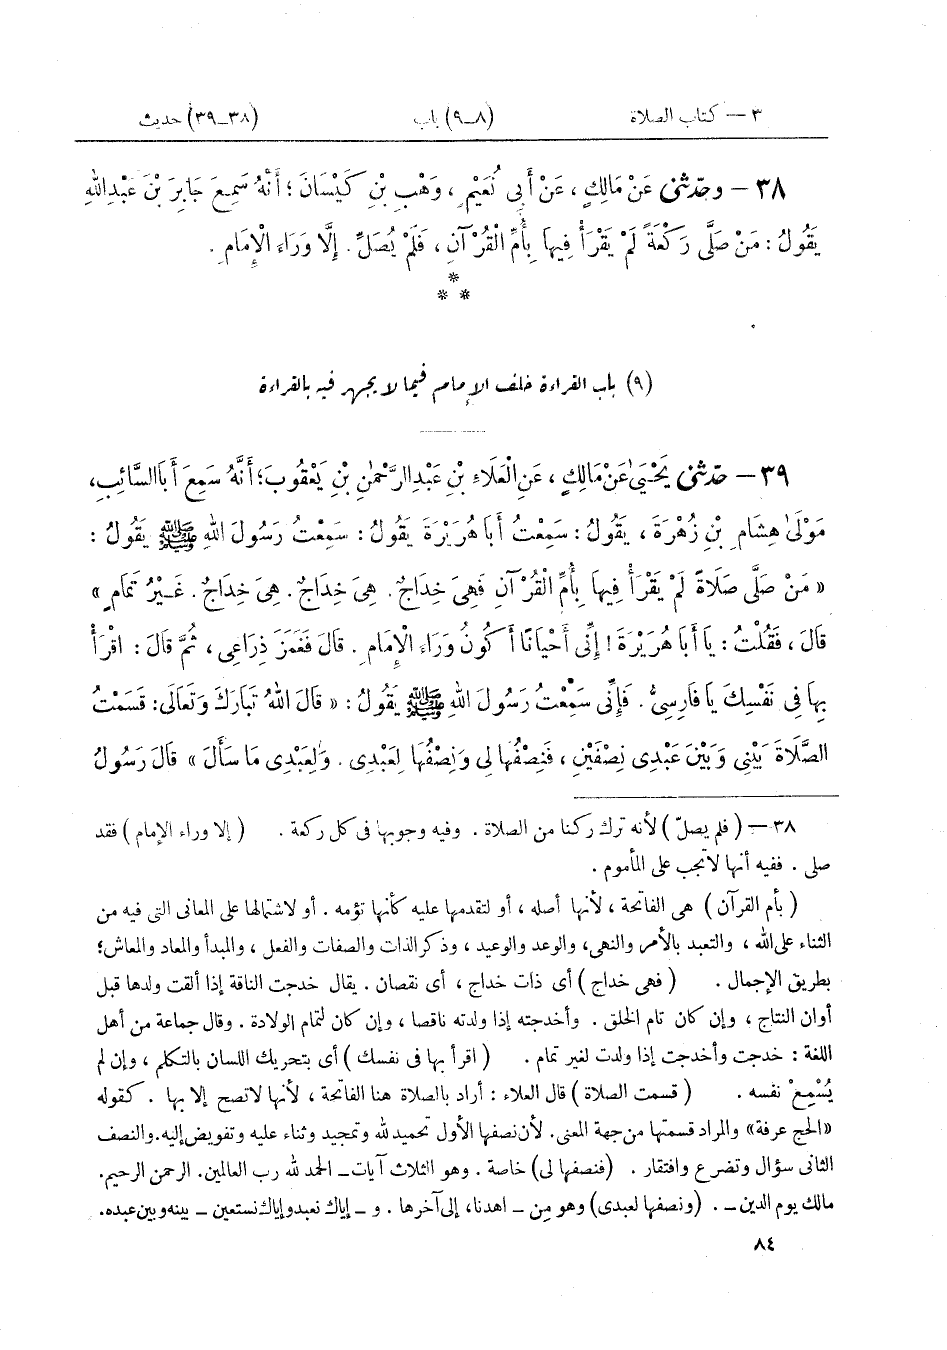 ٣ — كتاب الصلاة (٨ـ٩) باب (٣٨ـ٣٩) حديث
٣٨ – وحدّثنى عَنْ مَالِكٍ ، عَنْ أَبِى نُعَيْمٍ ، وَهْبِ بْنِ كَيْسَانَ ؛ أَنَّهُ سَمِعَ جَابِرَ بْنَ عَبْدِ اللهِ
يَقُولُ : مَنْ صَلَّى رَكْعَةً لَمْ يَقْرَأْ فِيهَا بِأُمِّ الْقُرْآنِ ، فَلَمْ يُصَلِّ . إِلَّا وَرَاءَ الْإِمَامِ .
*
* *
(٩) باب القراءة خلف الإمام فيما لا يجهر فيه بالقراءة
٣٩ – حدّثنى يَحْيَى عَنْ مَالِكٍ ، عَنِ الْعَلَاءِ بْنِ عَبْدِ الرَّحْمٰنِ بْنِ يَعْقُوبَ ؛ أَنَّهُ سَمِعَ أَبَا السَّائِبِ ،
مَوْلَى هِشَامِ بْنِ زُهْرَةَ ، يَقُولُ : سَمِعْتُ أَبَا هُرَيْرَةَ يَقُولُ : سَمِعْتُ رَسُولَ اللهِ ﷺ يَقُولُ :
« مَنْ صَلَّى صَلَاةً لَمْ يَقْرَأْ فِيهَا بِأُمِّ الْقُرْآنِ فَهِىَ خِدَاجٌ . هِىَ خِدَاجٌ . هِىَ خِدَاجٌ . غَيْرُ تَمَامٍ »
قَالَ ، فَقُلْتُ : يَا أَبَا هُرَيْرَةَ ! إِنِّى أَحْيَانًا أَكُونُ وَرَاءَ الْإِمَامِ . قَالَ فَغَمَزَ ذِرَاعِى ، ثُمَّ قَالَ : اقْرَأْ
بِهَا فِى نَفْسِكَ يَا فَارِسِىُّ . فَإِنِّى سَمِعْتُ رَسُولَ اللهِ ﷺ يَقُولُ : « قَالَ اللهُ تَبَارَكَ وَتَعَالَى : قَسَمْتُ
الصَّلَاةَ بَيْنِى وَبَيْنَ عَبْدِى نِصْفَيْنِ ، فَنِصْفُهَا لِى وَنِصْفُهَا لِعَبْدِى . وَلِعَبْدِى مَا سَأَلَ » قَالَ رَسُولُ
٣٨ – ( فلم يصلّ ) لأنه ترك ركنا من الصلاة . وفيه وجوبها فى كل ركعة . ( إلا وراء الإمام ) فقد
صلى . ففيه أنها لا تجب على المأموم .
( بأم القرآن ) هى الفاتحة ، لأنها أصله ، أو لتقدمها عليه كأنها تؤمه . أو لاشتمالها على المعانى التى فيه من
الثناء على الله ، والتعبد بالأمر والنهى، والوعد والوعيد ، وذكر الذات والصفات والفعل ، والمبدأ والمعاد والمعاش؛
بطريق الإجمال . ( فهى خداج ) أى ذات خداج ، أى نقصان . يقال خدجت الناقة إذا ألقت ولدها قبل
أوان النتاج ، وإن كان تام الخلق . وأخدجته إذا ولدته ناقصا ، وإن كان لتمام الولادة . وقال جماعة من أهل
اللغة : خدجت وأخدجت إذا ولدت لغير تمام . ( اقرأ بها فى نفسك ) أى بتحريك اللسان بالتكلم ، وإن لم
يُسْمِعْ نفسه . ( قسمت الصلاة ) قال العلاء : أراد بالصلاة هنا الفاتحة ، لأنها لا تصح إلا بها . كقوله
«الحج عرفة» والمراد قسمتها من جهة المعنى . لأن نصفها الأول تحميد لله وتمجيد وثناء عليه وتفويض إليه . والنصف
الثانى سؤال وتضرع وافتقار . (فنصفها لى) خاصة . وهو الثلاث آيات ـ الحمد لله رب العالمين . الرحمن الرحيم .
مالك يوم الدين ـ . (ونصفها لعبدى) وهو مِن ـ اهدنا، إلى آخرها . و ـ إياك نعبد وإياك نستعين ـ بينه وبين عبده .
٨٤